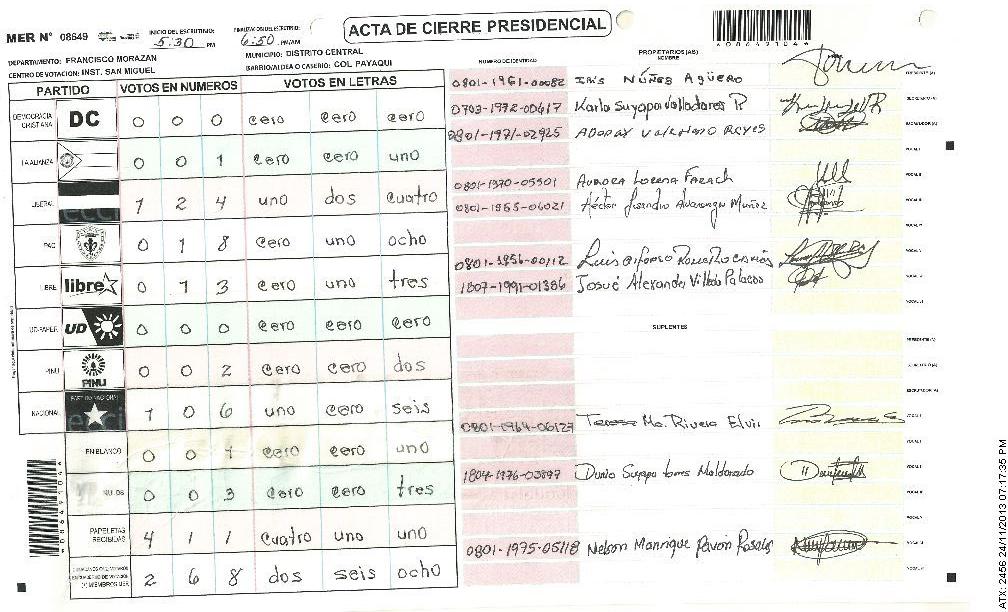 ACTA DE CIERRE PRESIDENCIAL
MER N° 08649
INICIO DEL ESCRUTINIO: 5:30 PM
FINALIZACION DEL ESCRUTINIO: 6:50 PM/AM
DEPARTAMENTO: FRANCISCO MORAZAN
MUNICIPIO: DISTRITO CENTRAL
CENTRO DE VOTACION: INST. SAN MIGUEL
BARRIO/ALDEA O CASERIO: COL PAYAQUI
PARTIDO VOTOS EN NUMEROS VOTOS EN LETRAS
DEMOCRACIA CRISTIANA DC 0 0 0 cero cero cero
LA ALIANZA 0 0 1 cero cero uno
LIBERAL 1 2 4 uno dos cuatro
PAC 0 1 8 cero uno ocho
LIBRE libre 0 1 3 cero uno tres
UD-FAPER UD 0 0 0 cero cero cero
PINU PINU 0 0 2 cero cero dos
NACIONAL PARTIDO NACIONAL 1 0 6 uno cero seis
EN BLANCO 0 0 1 cero cero uno
NULOS 0 0 3 cero cero tres
PAPELETAS RECIBIDAS 4 1 1 cuatro uno uno
2 6 8 dos seis ocho
NUMERO DE IDENTIDAD PROPIETARIOS (AS) NOMBRE
0801-1961-00082 IRIS NÚÑEZ AGÜERO PRESIDENTE (A)
0703-1972-00617 Karla Suyapa Valladares R SECRETARIO (A)
0801-1971-02925 ADONAY REYES ESCRUTADOR (A)
VOCAL I
0801-1970-05501 AURORA LORENA FARACH VOCAL II
0801-1955-06021 Héctor Lisandro Alvarenga Muñoz VOCAL III
VOCAL IV
0801-1956-00112 Luis Alfonso VOCAL V
1807-1991-01386 Josué Alexander Palacios
VOCAL VI
SUPLENTES
PRESIDENTE (A)
SECRETARIO (A)
ESCRUTADOR (A)
0801-1964-06127 Teresa Ma. Rivera Elvir VOCAL I
1804-1976-03897 Dunia Suyapa Maldonado
VOCAL V
0801-1975-05118 Nelson Manrique Pavon Rosales
ATX: 2456 24/11/2013 07:17:35 PM